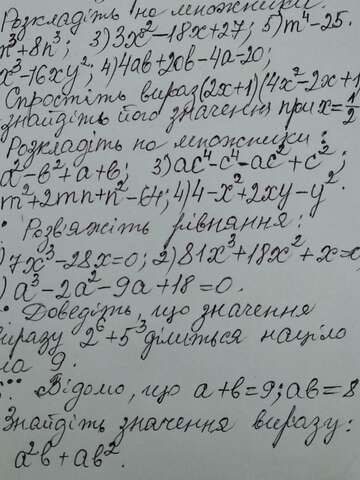 Розкладіть на множники:
n³+8n³; 3)3x²-18x+27; 5)m⁴-25.
x³-16xy²; 4)4ab+20b-4a-20;
Спростіть вираз(2x+1)(4x²-2x+1
знайдіть його значення при x=1/2
Розкладіть на множники:
a²-b²+a+b; 3)ac⁴-c⁴-ac²+c²;
m²+2mn+n²-64; 4)4-x²+2xy-y².
Розв'яжіть рівняння:
)7x³-28x=0; 2)81x³+18x²+x=0
) a³-2a²-9a+18=0.
Доведіть, що значення
виразу 2⁶+5³ ділиться націло
на 9.
Відомо, що a+b=9; ab=8
Знайдіть значення виразу:
a²b+ab².